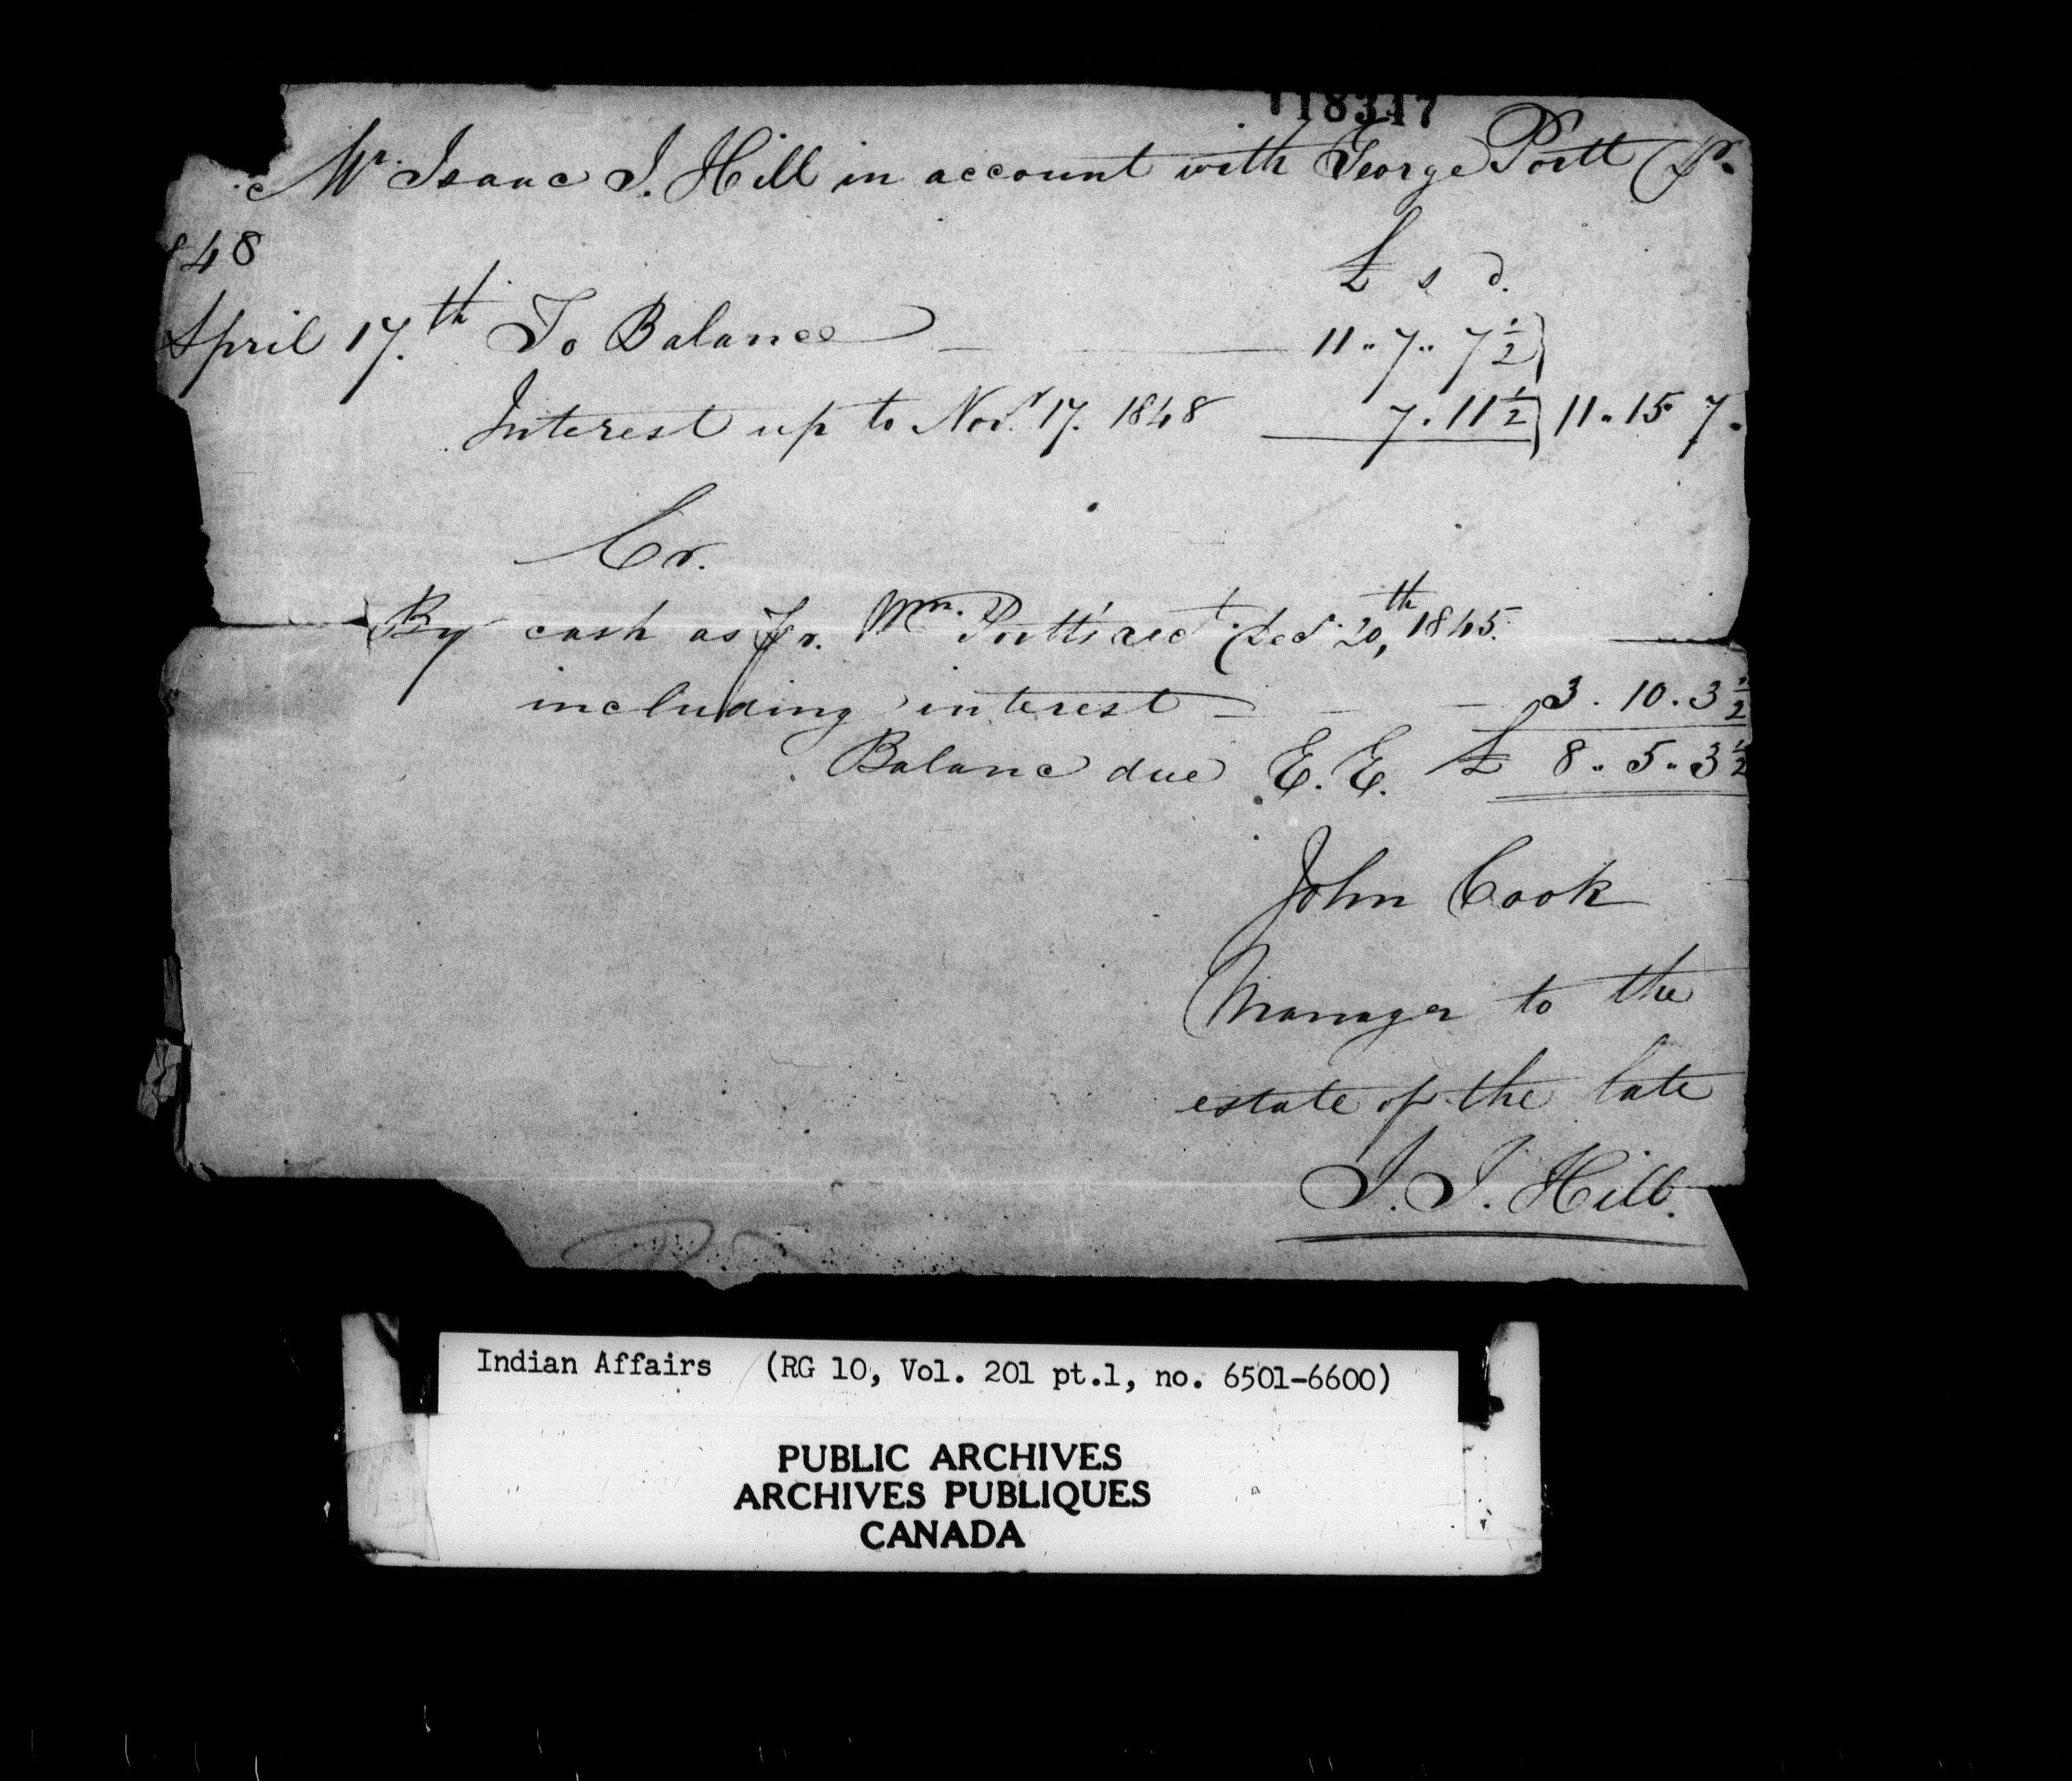 118347
Mr. Isaac I. Hill in account with George Portt Dr.
848
£ s d.
April 17.th To Balance 11 „ 7 „ 7 1/2
Interest up to Novr. 17. 1848 7 . 11 1/2 } 11 „ 15 7 .
Cr.
By cash as pr. Wm. Portt's acct. 20,th 1845.
including interest 3 . 10 . 3 1/2
Balanc due E. E. £ 8 „ 5 „ 3 1/2
John Cook
Manager to the
estate of the late
I. I. Hill.
Indian Affairs (RG 10, Vol. 201 pt.1, no. 6501-6600)
PUBLIC ARCHIVES
ARCHIVES PUBLIQUES
CANADA